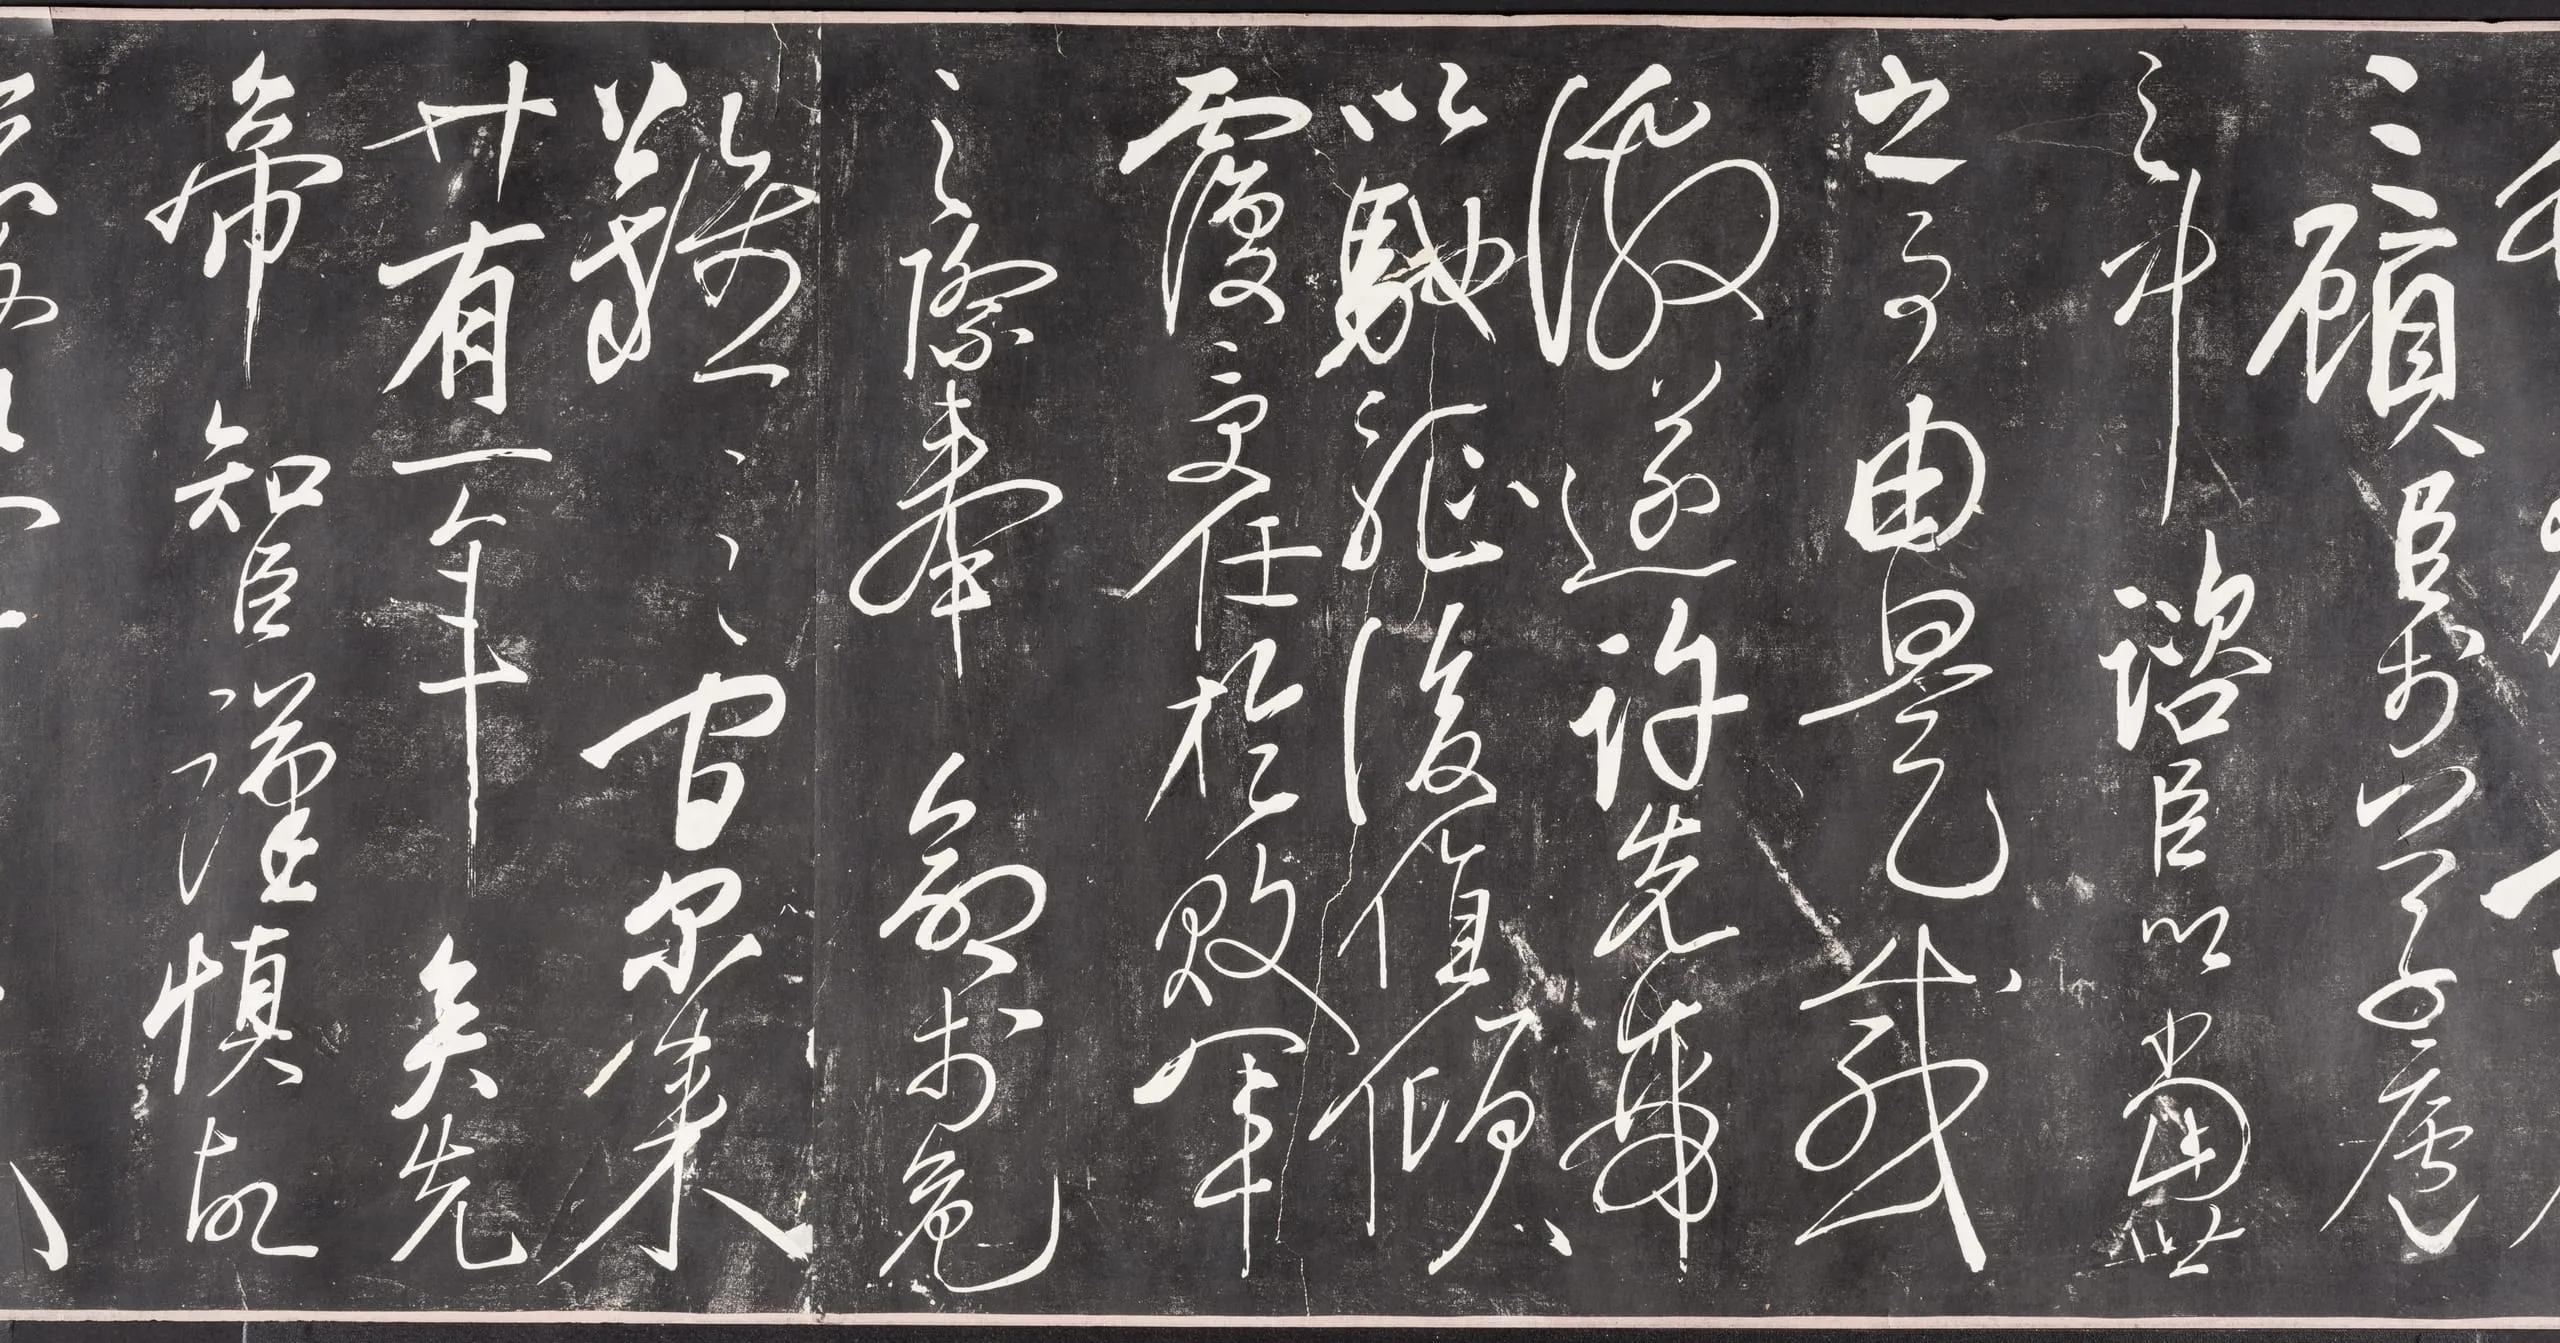 三顧臣於草廬
之中諮臣以當世
之事由是感
激遂許先帝
以馳驅後值傾
覆受任於敗軍
之際奉命於危
難之間爾來
廿有一年矣先
帝知臣謹慎故